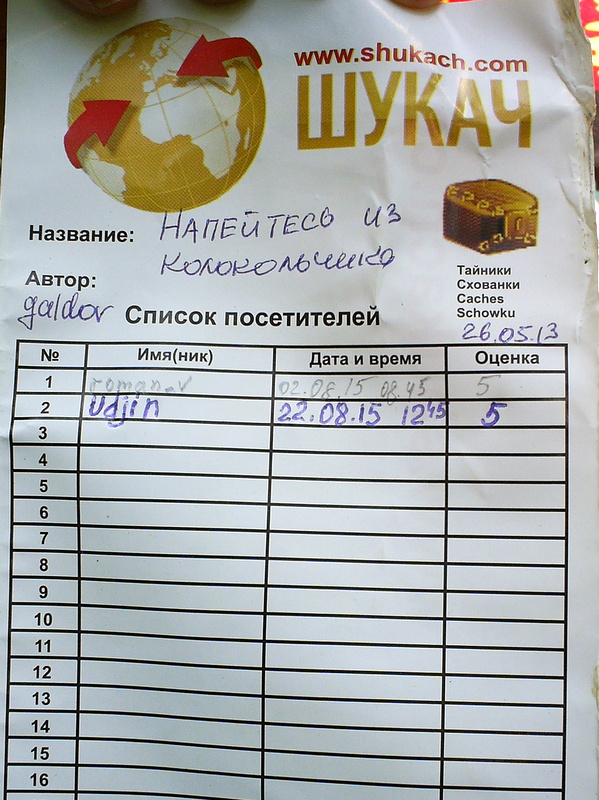 www.shukach.com
ШУКАЧ
Название: НАПЕЙТЕСЬ ИЗ
КОЛОКОЛЬЧИКА
Тайники
Схованки
Caches
Schowku
Автор:
galdor
Список посетителей
26.05.13
№ Имя(ник) Дата и время Оценка
1 roman_v 02.08.15 08.45 5
2 Udjin 22.08.15 12 45 5
3
4
5
6
7
8
9
10
11
12
13
14
15
16